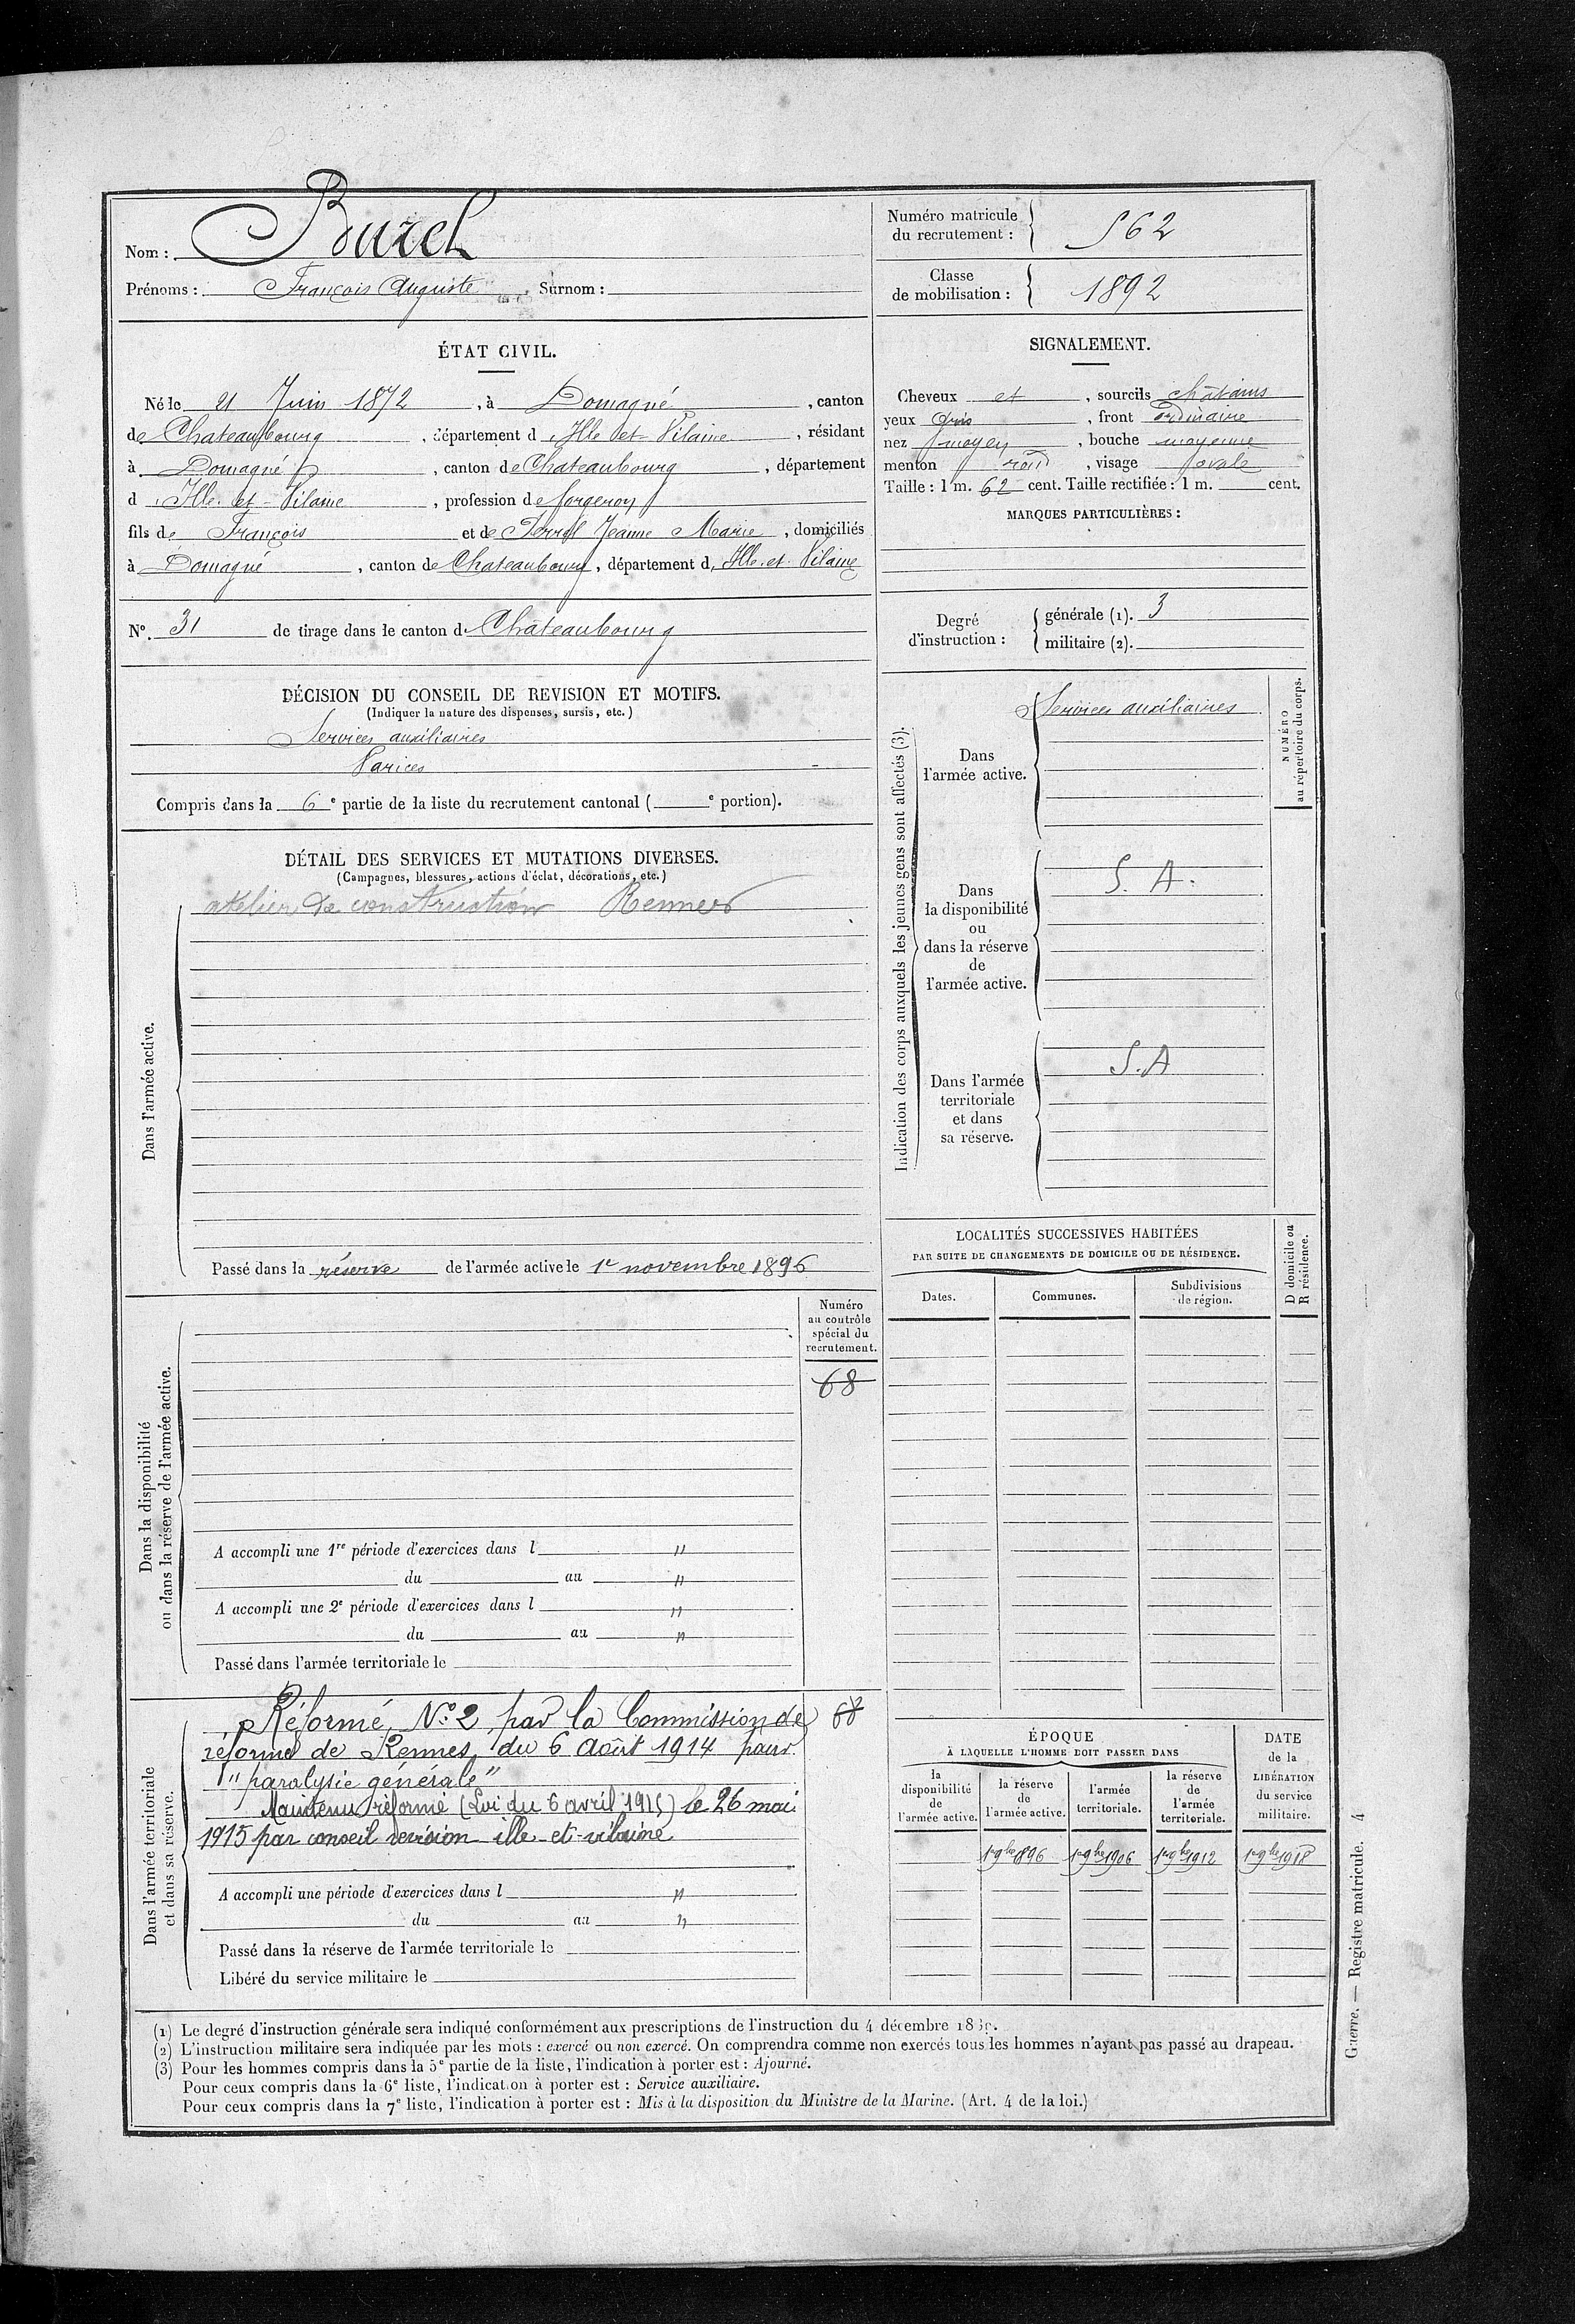 Nom : Bourel
Prénoms : François Auguste Surnom :
Numéro matricule du recrutement : 562
Classe de mobilisation : 1892
ÉTAT CIVIL.
Né le 21 Juin 1872, à Domagné, canton
de Chateaubourg, département d Ille et Vilaine, résidant
à Domagné, canton de Chateaubourg, département
d Ille et Vilaine, profession de forgeron
fils de François et de Jeanne Marie, domiciliés
à Domagné, canton de Chateaubourg, département d Ille et Vilaine
N° 31 de tirage dans le canton d Chateaubourg
SIGNALEMENT.
Cheveux et, sourcils châtains
yeux gris, front ordinaire
nez moyen, bouche moyenne
menton rond, visage ovale
Taille : 1 m. 62 cent. Taille rectifiée : 1 m. cent.
MARQUES PARTICULIÈRES :
Degré d'instruction :
générale (1). 3
militaire (2).
DÉCISION DU CONSEIL DE REVISION ET MOTIFS.
(Indiquer la nature des dispenses, sursis, etc.)
Services auxiliaires
Varices
Compris dans la 6e partie de la liste du recrutement cantonal ( e portion).
DÉTAIL DES SERVICES ET MUTATIONS DIVERSES.
(Campagnes, blessures, actions d'éclat, décorations, etc.)
Dans l'armée active.
atelier de construction Rennes
Passé dans la réserve de l'armée active le 1r novembre 1896
Indication des corps auxquels les jeunes gens sont affectés (3).
NUMÉRO au répertoire du corps.
Dans l'armée active.
Services auxiliaires
Dans la disponibilité ou dans la réserve de l'armée active.
S. A.
Dans l'armée territoriale et dans sa réserve.
S. A
LOCALITÉS SUCCESSIVES HABITÉES
PAR SUITE DE CHANGEMENTS DE DOMICILE OU DE RÉSIDENCE.
Dates.
Communes.
Subdivisions de région.
D domicile ou R résidence.
Dans la disponibilité ou dans la réserve de l'armée active.
Numéro au contrôle spécial du recrutement.
68
A accompli une 1re période d'exercices dans l "
du au "
A accompli une 2e période d'exercices dans l "
du au "
Passé dans l'armée territoriale le
Dans l'armée territoriale et dans sa réserve.
Réformé N° 2 par la Commission de 68
réforme de Rennes du 6 Août 1914 pour
"paralysie générale"
Maintenu réformé (Loi du 6 avril 1915) le 26 mai
1915 par conseil revision ille-et-vilaine
A accompli une période d'exercices dans l "
du au "
Passé dans la réserve de l'armée territoriale le
Libéré du service militaire le
ÉPOQUE
À LAQUELLE L'HOMME DOIT PASSER DANS
la disponibilité de l'armée active.
la réserve de l'armée active.
l'armée territoriale.
la réserve de l'armée territoriale.
DATE de la LIBÉRATION du service militaire.
1er 9bre 1896 1er 9bre 1906 1er 9bre 1912 1er 9bre 1918
(1) Le degré d'instruction générale sera indiqué conformément aux prescriptions de l'instruction du 4 décembre
(2) L'instruction militaire sera indiquée par les mots : exercé ou non exercé. On comprendra comme non exercés tous les hommes n'ayant pas passé au drapeau.
(3) Pour les hommes compris dans la 5e partie de la liste, l'indication à porter est : Ajourné.
Pour ceux compris dans la 6e liste, l'indication à porter est : Service auxiliaire.
Pour ceux compris dans la 7e liste, l'indication à porter est : Mis à la disposition du Ministre de la Marine. (Art. 4 de la loi.)
Guerre. — Registre matricule. 4